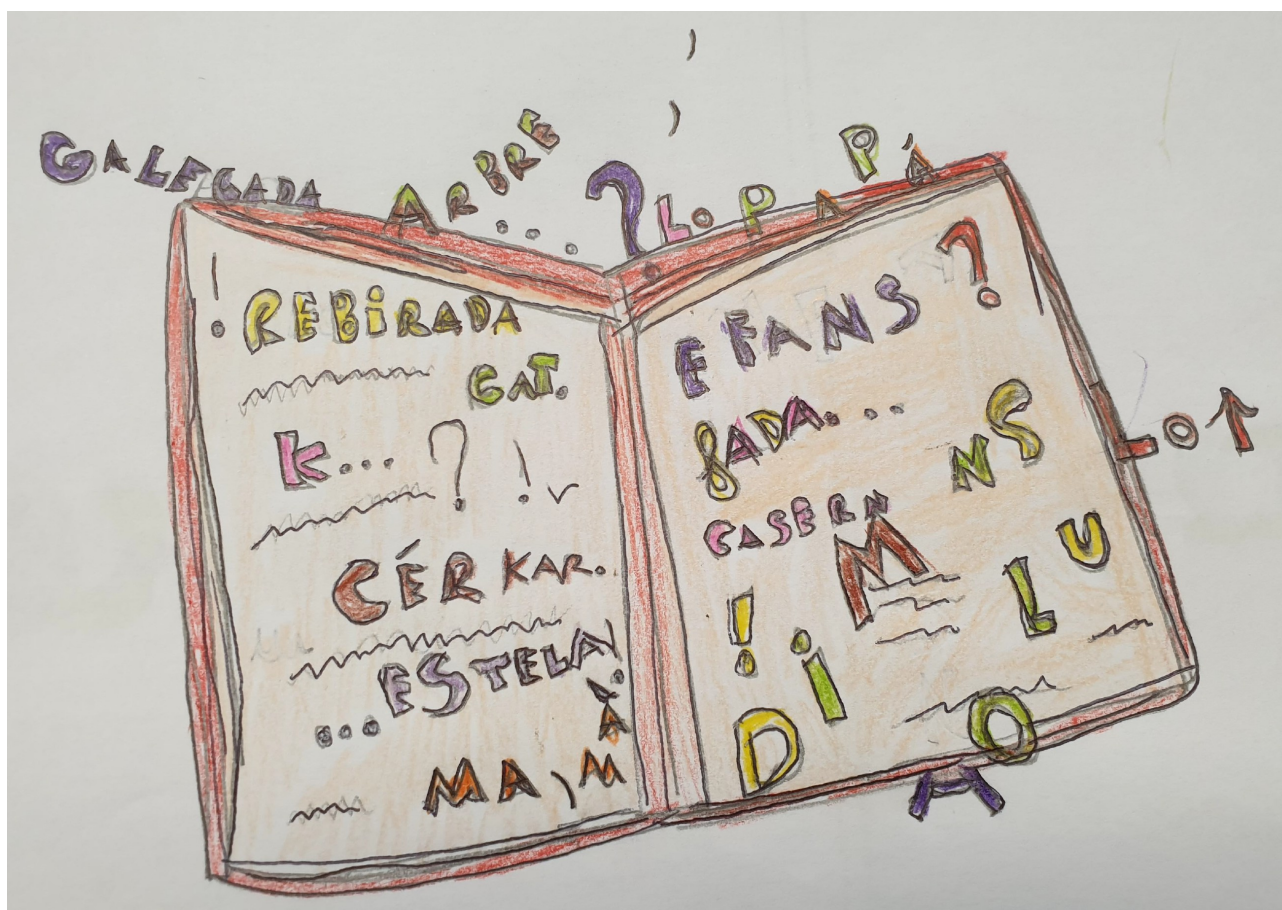 GALEGADA
ARBRE...
?
LO PAPÁ
! REBIRADA
CAT.
K...?!
CÉRKAR.
...ESTELA!
MA,MÀ
EFANS?
GADA...
CASERN
M
NS
LO↑
!
DiLU
OA